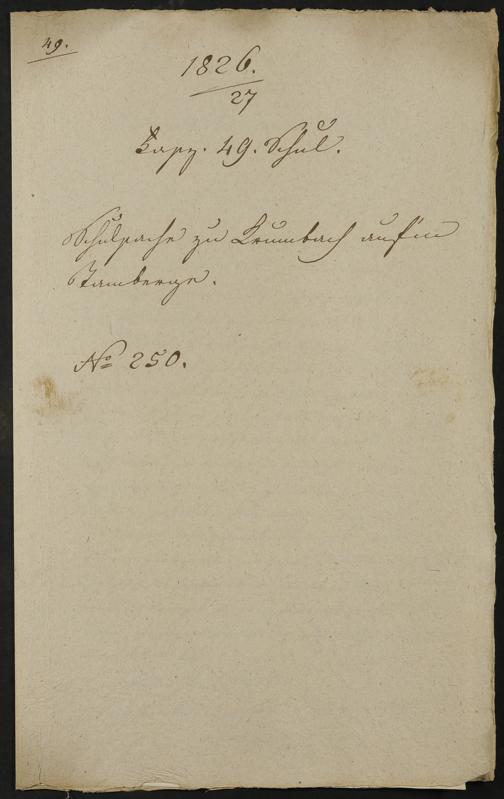 49.
1826.
27
Kapp. 49. Schul.
Schulsache zu Krumbach auf'm
Tamberge.
No 250.